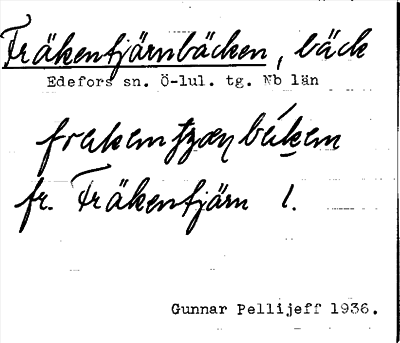 Fräkentjärnbäcken, bäck
Edefors sn. Ö-lul. tg. Nb län
frakemtjæṇbäkem
fr. Fräkentjärn 1.
Gunnar Pellijeff 1936.